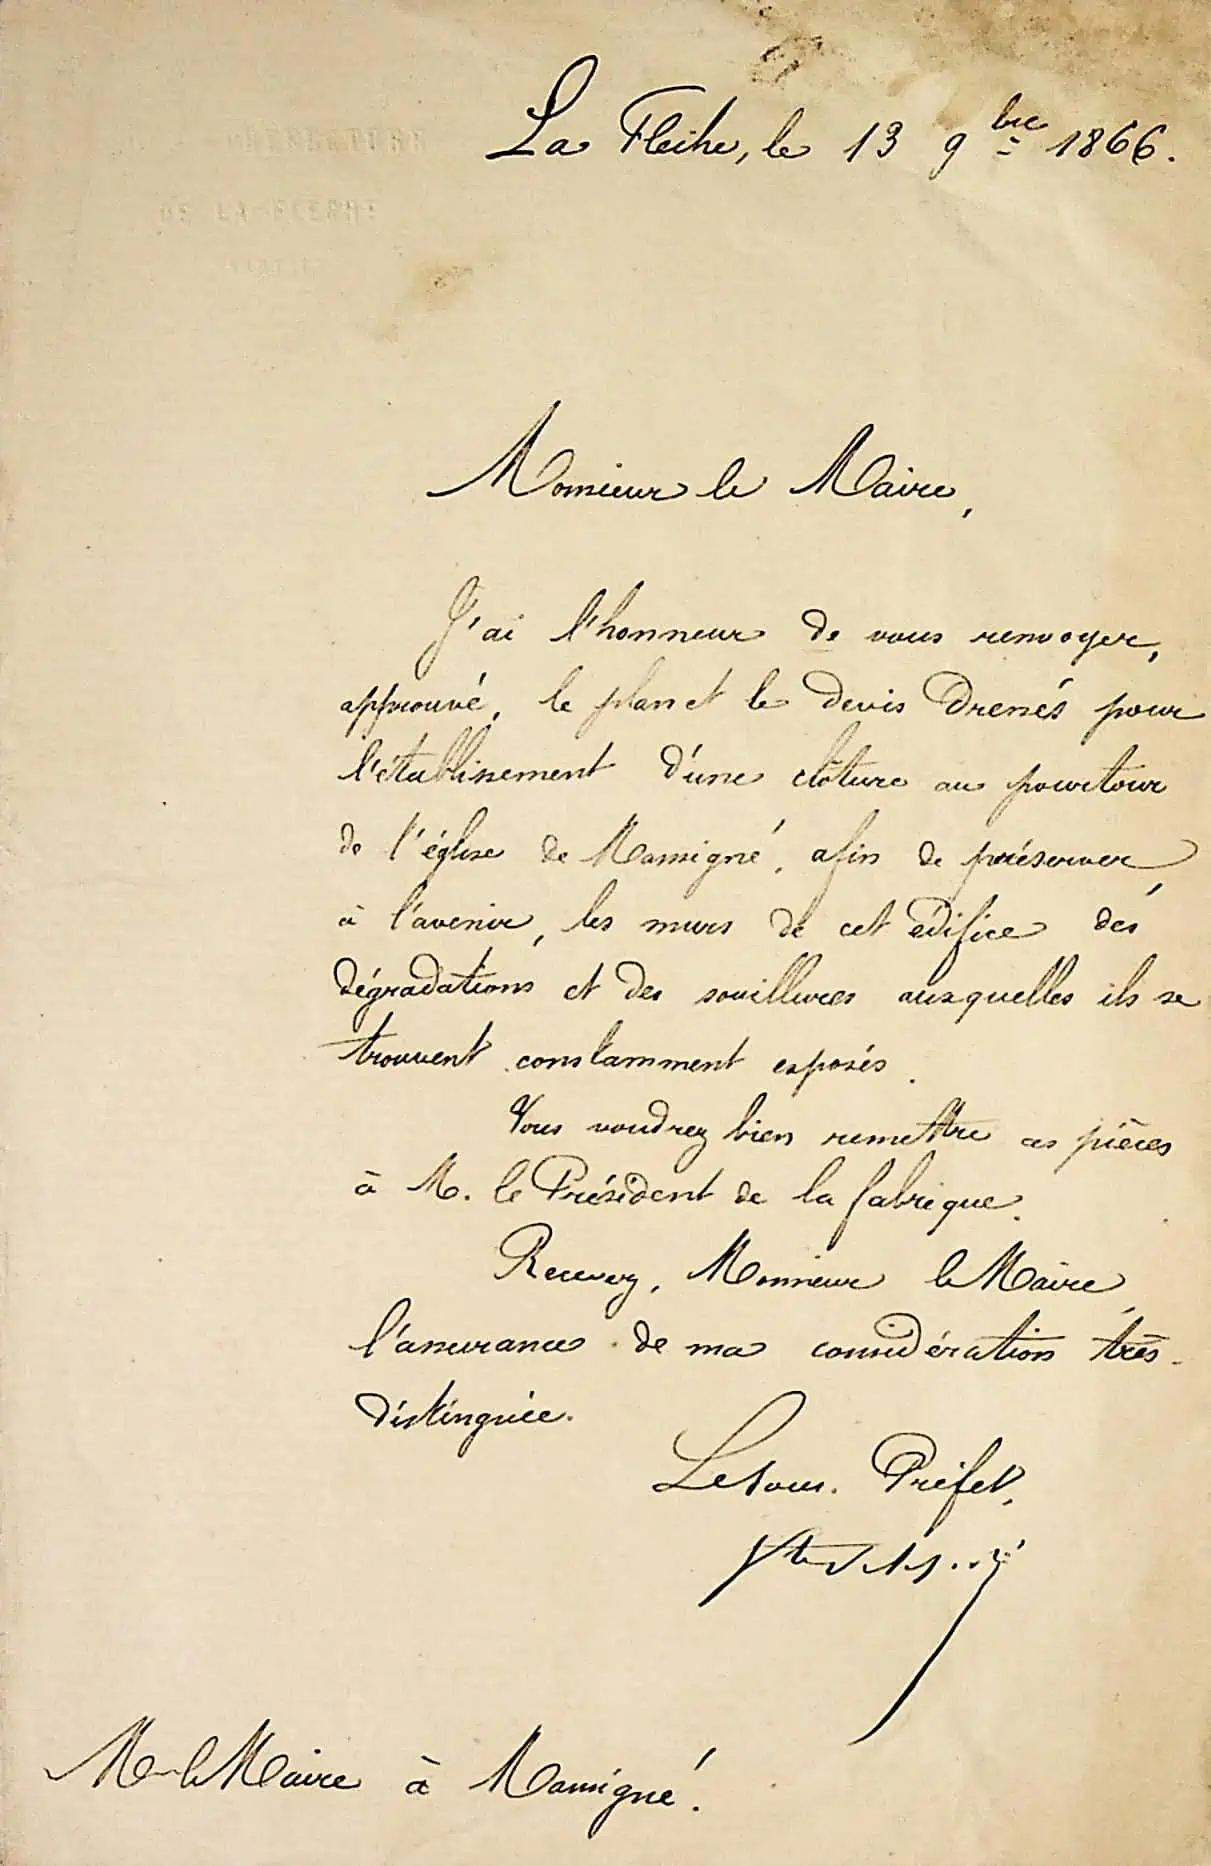 SOUS-PRÉFECTURE
DE LA FLÈCHE
La Flèche, le 13 9bre 1866.
Monsieur le Maire,
J'ai l'honneur de vous renvoyer,
approuvé, le plan et le devis dressés pour
l'établissement d'une clôture au pourtour
de l'église de Mansigné, afin de préserver,
à l'avenir, les murs de cet édifice des
dégradations et des souillures auxquelles ils se
trouvent constamment exposés.
Vous voudrez bien remettre ces pièces
à M. le Président de la fabrique.
Recevez, Monsieur le Maire,
l'assurance de ma considération très-
distinguée.
Le Sous-Préfet,
M. le Maire à Mansigné.